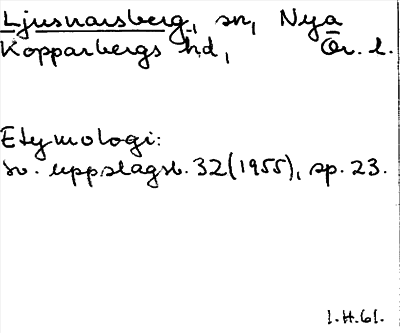 Ljusnarsberg, sn, Nya
Kopparbergs hd, Ör. l.
Etymologi:
sv. uppslagsb. 32 (1955), sp. 23.
I.H.61.